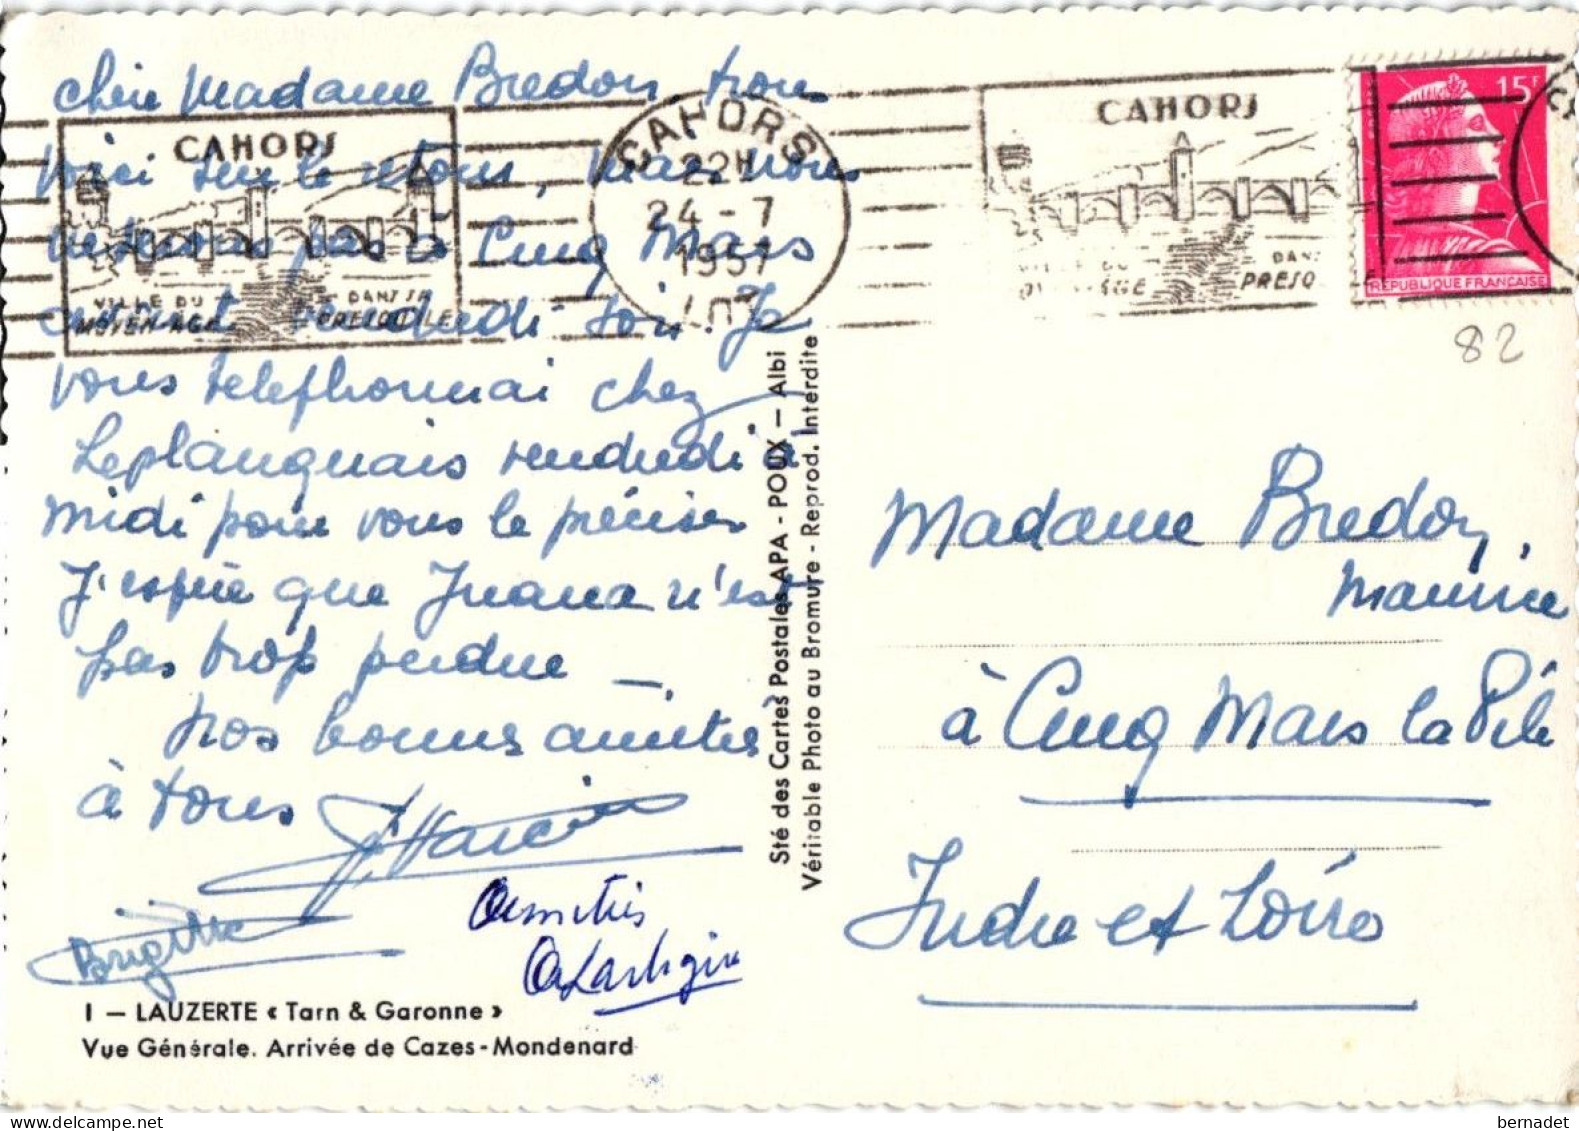 chère Madame Bredon, nous
voici sur le retour, mais nous
pas à Cinq Mars
vendredi soir. Je
vous telephonnai chez
Leplanquais vendredi à
midi pour vous le préciser
J'espère que Juana n'est
pas trop perdue —
nos bonnes amities
à tous
Brigitte
I — LAUZERTE « Tarn & Garonne »
Vue Générale. Arrivée de Cazes-Mondenard
CAHORS
VILLE DU MOYEN-AGE
DANS SA PRESQU'ILE
CAHORS
22H
24 - 7
1957
LOT
CAHORS
PRESQ
15F
REPUBLIQUE FRANÇAISE
82
Sté des Cartes Postales APA - POUX — Albi
Véritable Photo au Bromure - Reprod. Interdite
Madame Bredon,
Maurice
à Cinq Mars la Pile
Indre et Loire
bernadet